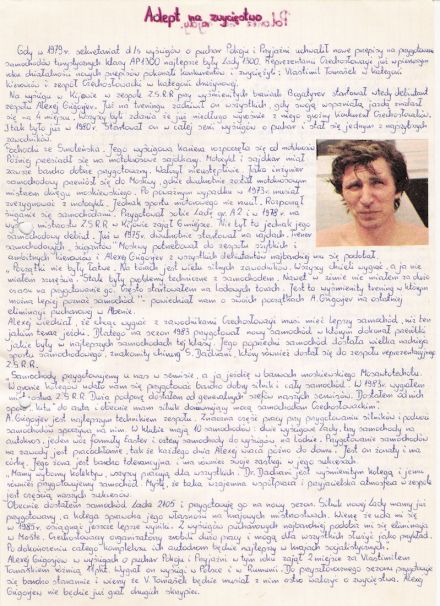 Adept na zwycięstwo
Gdy w 1979r. sekretariat d/s wyścigów o puchar Pokoju i Przyjaźni uchwalił nowe przepisy na przygotowanie
samochodów turystycznych klasy AP1300 najlepsze były Łady 1300. Reprezentanci Czechosłowacji już w pierwszym
roku działalności nowych przepisów pokonali konkurentów i zwyciężyli: Vlastimil Tomášek w kategorii
kierowców i zespół Czechosłowacki w kategorii drużynowej.
Na wyścigu w Kijowie w zespole Z.S.R.R. przy wyśmienitych braciach Bogatyrov startował wtedy debiutant
zespołu Alexej Grigojev. Już na treningu zadziwił on wszystkich, gdy swoją wspaniałą jazdą znalazł
się na 4 miejscu. Wszyscy byli zdania że już niedługo wyrośnie z niego groźny konkurent Czechosłowaków.
I tak było już w 1980r. Startował on w całej serii wyścigów o puchar i stał się jednym z najszybszych
zawodników.
Pochodzi ze Smoleńska. Jego wyścigowa kariera rozpoczęła się od motokrosu
Później przesiadł się na motokrosowe sajdkary. Motocykl i sajdkar miał
zawsze bardzo dobrze przygotowany. Walczył nieustępliwie. Jako inżynier
samochodowy przeniósł się do Moskwy, gdzie dwukrotnie został motokrosowym
mistrzem okręgu moskiewskiego. Po poważnym wypadku w 1973r. musiał
zrezygnować z motocykli. Jednak sportu motorowego nie rzucił. Rozpoczął
ściganie się samochodami. Przygotował sobie Ładę gr. A2 i w 1978r. na
mistrzostw Z.S.R.R. w Kijowie zajął 6 miejsce. Nie był to jednak jego
samochodowy debiut. Już w 1975r. dwukrotnie startował na rajdach
samochodowych. Moskwy potrzebował do zespołu szybkich i
ambitnych kierowców i Alexej Grigojev z wszystkich debiutantów najbardziej mu się podobał.
„Początki nie były łatwe. Na torach jest wielu silnych zawodników. Wszyscy chcieli wygrać, a ja nie
miałem szczęścia. Stale były problemy techniczne z samochodem. Nawet w zimie nie miałem za dużo
czasu na przygotowanie go, często startowałem na lodowych torach. Jest to wyśmienity trening w którym
można lepiej poznać samochód", powiedział nam o swoich początkach A. Grigojev na ostatniej
eliminacji pucharowej w
Alexej wiedział, że chcąc wygrać z zawodnikami Czechosłowacji musi mieć lepszy samochód, niż ten
jakim teraz jeździ. Dlatego na sezon 1983 przygotował nowy samochód w którym dokonał przeróbki
jakie były w najlepszych samochodach tej klasy. Jego poprzedni samochód dostała wielka nadzieja
sportu samochodowego, znakomity chirurg S. Dadvani, który również dostał się do zespołu reprezentacyjnego
Z.S.R.R.
„Samochody przygotowujemy u nas w serwisie, a ja jeżdżę w barwach moskiewskiego Mosavtotechu.
W gronie kolegów udało nam się przygotować bardzo dobry silnik i cały samochód. W 1983r. wygrałem
Z.S.R.R. Dużą podporę dostałem od generalnych szefów naszych serwisów. Dostałem od nich
sporo do auta i obecnie mam silnik dorównujący mocą samochodom Czechosłowackim.
A. Grigojev jest najlepszym technikiem zespołu. Znaczna część pracy przy przygotowaniu silników i podwozi
samochodów spoczywa na nim. W klubie mają 10 samochodów: dwie wyścigowe Łady, trzy samochody na
autokros, jeden wóz formuły Easter i cztery samochody do wyścigów na lodzie. Przygotowanie samochodów
na zawody jest pracochłonne, tak że każdego dnia Alexej wraca późno do domu. Jest on żonaty i ma
córkę. Jego żona jest bardzo tolerancyjna i ma również swoje zasługi w jego sukcesach.
„Mamy wyborny kolektyw i wszyscy pracują dla wszystkich. Dr. Dadvani jest wyśmienitym kolegą i jemu
również przygotowujemy samochód. Myślę, że taka wzajemna współpraca i przyjacielska atmosfera w zespole
jest częścią naszych sukcesów.
Obecnie dostałem samochód Łada 2105 i przygotowuję go na nowy sezon. Silnik nowej Łady mamy już
przygotowany, a kolega sprawdza jego własności na krajowych mistrzostwach. Wierzę że uda mi się
w 1985r. osiągnąć jeszcze lepsze wyniki. Z wyścigów pucharowych najbardziej podoba mi się eliminacja
w Moście. Czechosłowaccy organizatorzy zrobili dużo pracy i mogą dla wszystkich służyć jako przykład.
Po dokończeniu całego kompleksu ich autodrom będzie najlepszy w krajach socjalistycznych.
Alexej Grigojev w wyścigach o puchar Pokoju i Przyjaźni w tym roku zajął 2 miejsce za Vlastimilem
Tomáškiem różnicą 14pkt. Wygrał on wyścig w Polsce i w Rumunii. Do przyszłorocznego sezonu przygotowuje
się bardzo starannie i wierzy że V. Tomášek będzie musiał z nim ostro walczyć o zwycięstwo. Alexej
Grigojev nie będzie już grał drugich skrzypiec.